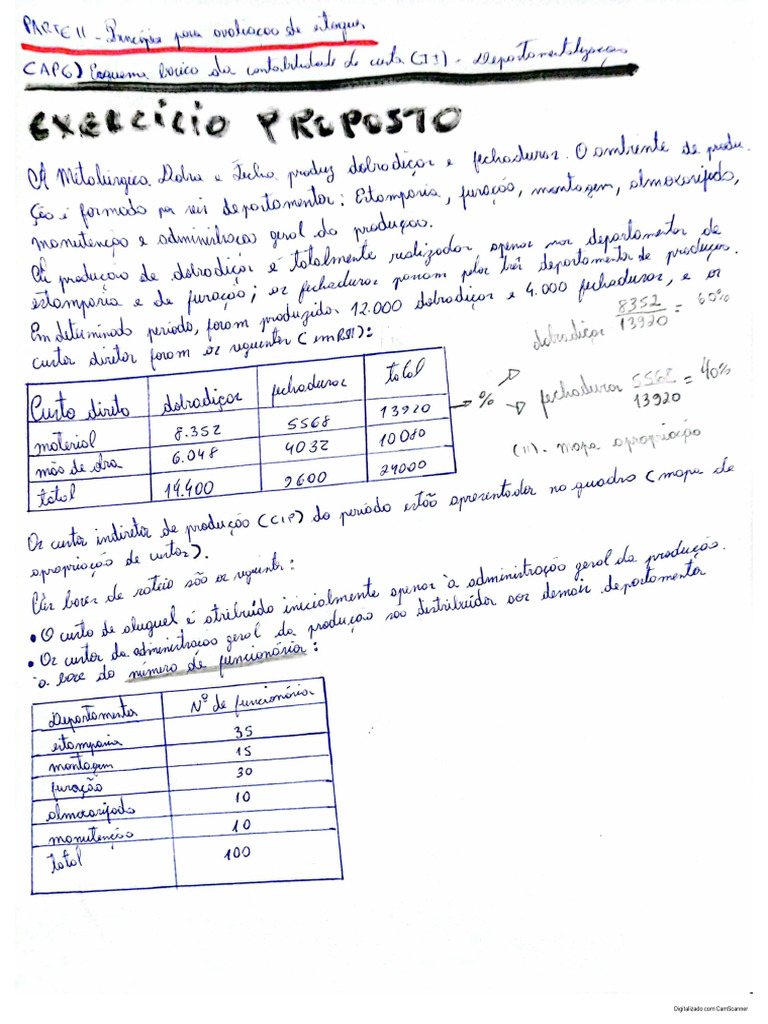 PARTE II - Princípios para avaliação de estoques
(CAP6) Esquema básico da contabilidade de custo (II) - Departamentalização
EXERCÍCIO PROPOSTO
A Metalúrgica Dobra e Fecha produz dobradiças e fechaduras. O ambiente de produ-
ção é formado por seis departamentos: Estamparia, furação, montagem, almoxarifado,
manutenção e administração geral da produção.
A produção de dobradiças é totalmente realizadas apenas nos departamentos de
estamparia e de furação; as fechaduras passam pelos três departamentos de produção.
Em determinado período, foram produzidas 12.000 dobradiças e 4.000 fechaduras, e os
custos diretos foram os seguintes (em R$):
dobradiças 8352/13920 = 60%
Custo direto dobradiças fechaduras total
material 8.352 5568 13920 → %
fechaduras 5568/13920 = 40%
mão de obra 6.048 4032 10080
total 14.400 9600 24000
(II) - mapa apropriação
Os custos indiretos de produção (CIP) do período estão apresentados no quadro (mapa de
apropriação de custos).
As bases de rateio são as seguintes:
• O custo de aluguel é atribuído inicialmente apenas à administração geral da produção.
• Os custos da administração geral da produção são distribuídos aos demais departamentos
à base do número de funcionários:
Departamentos Nº de funcionários
estamparia 35
montagem 15
furação 30
almoxarifado 10
manutenção 10
total 100
Digitalizado com CamScanner